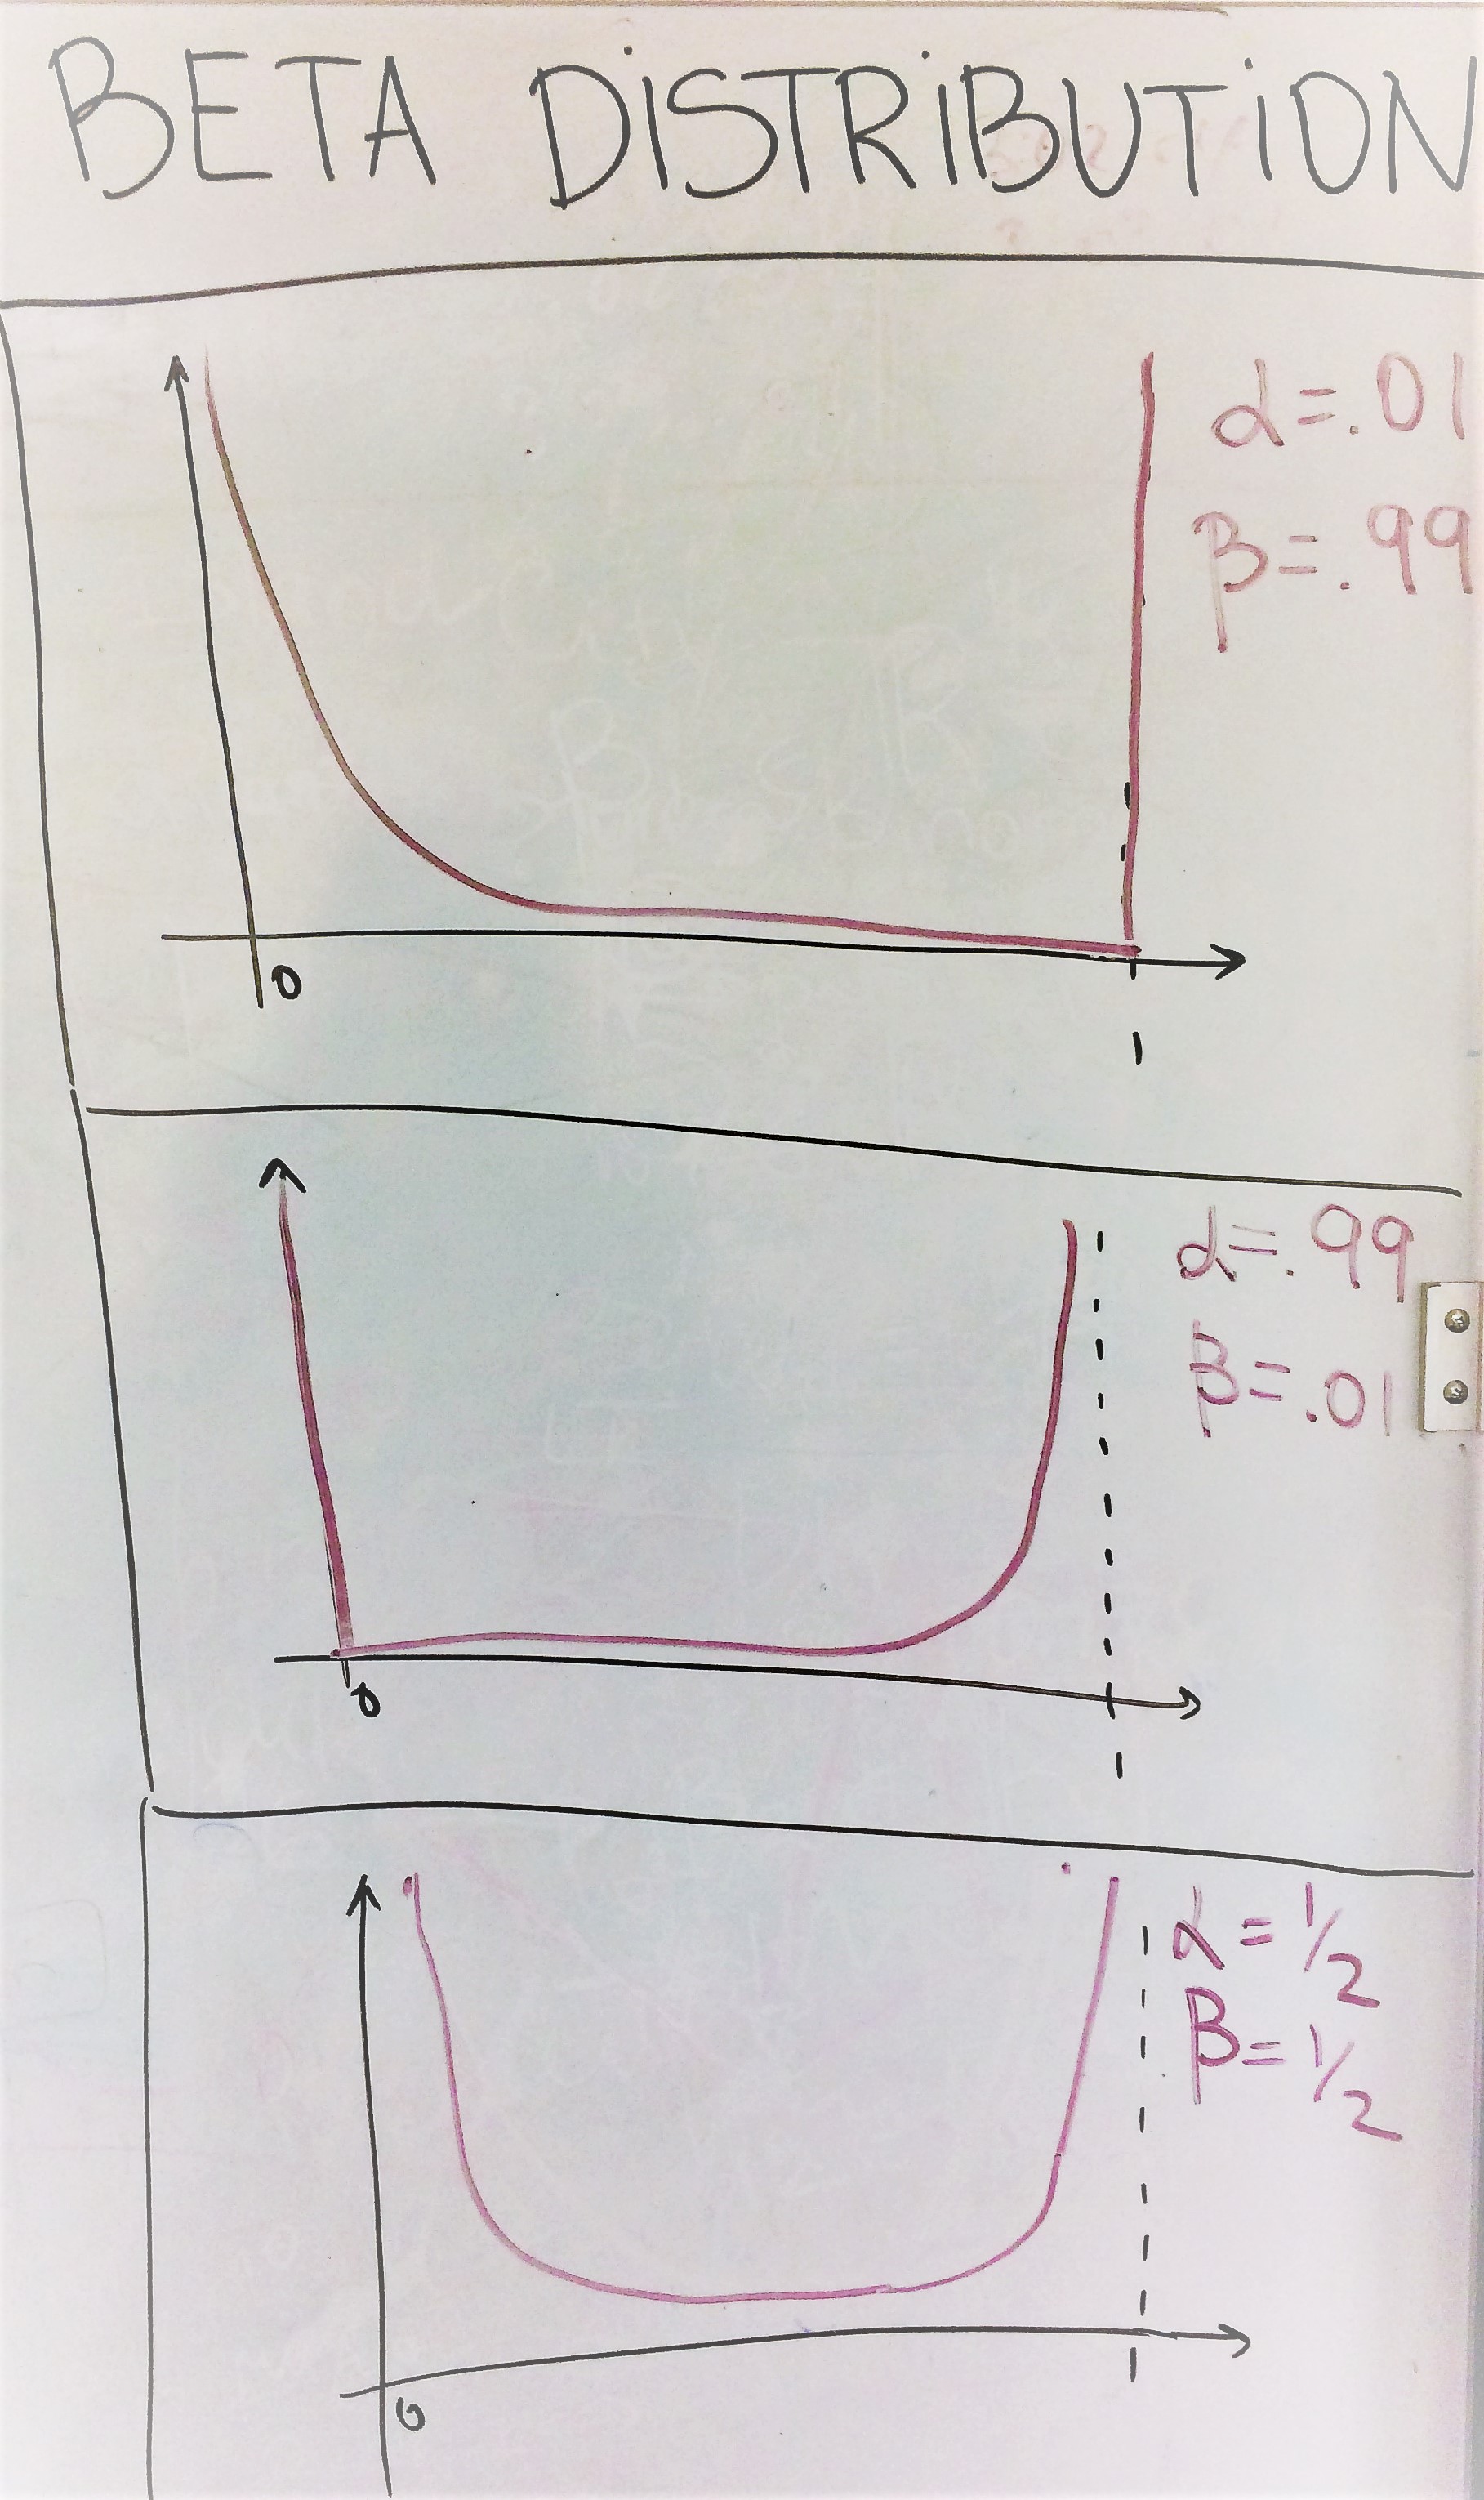 BETA DISTRIBUTION
α=.01
β=.99
0
1
α=.99
β=.01
0
1
α=1/2
β=1/2
0
1